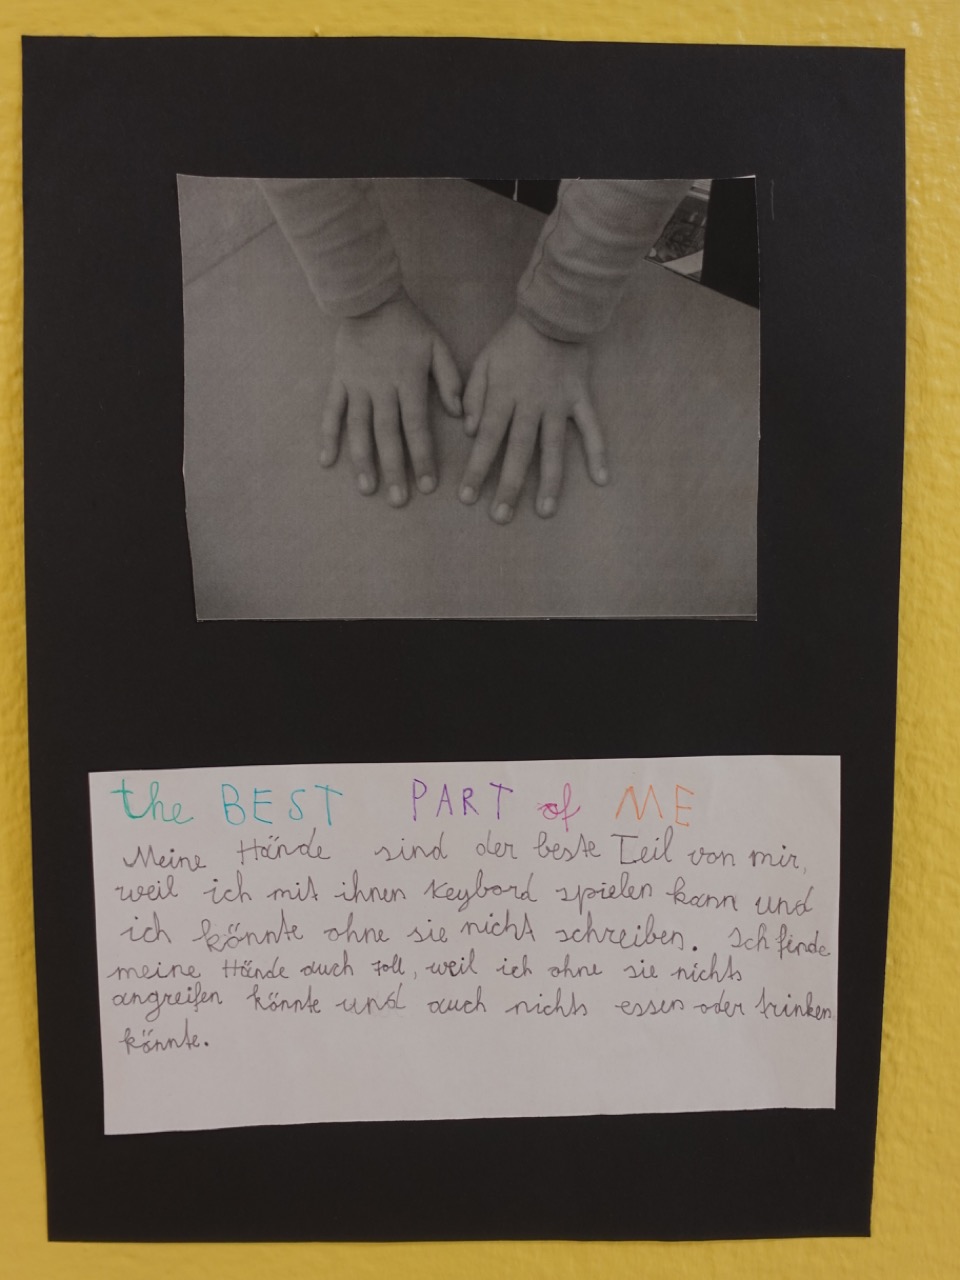 the BEST PART of ME
Meine Hände sind der beste Teil von mir,
weil ich mit ihnen Keybord spielen kann und
ich könnte ohne sie nicht schreiben. Ich finde
meine Hände auch toll, weil ich ohne sie nichts
angreifen könnte und auch nichts essen oder trinken
könnte.